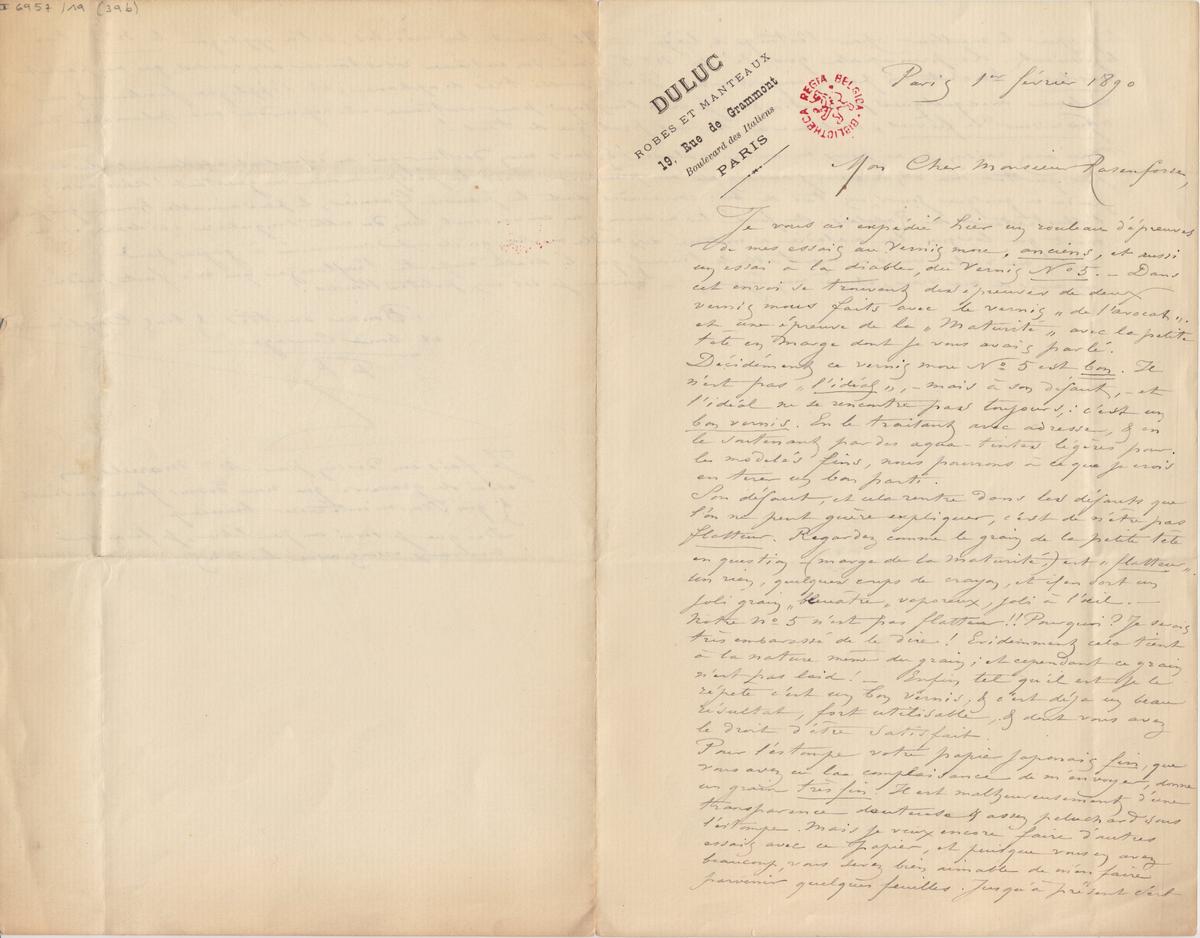 II 6957 /19 (39b)
DULUC
ROBES ET MANTEAUX
19, Rue de Grammont
Boulevard des Italiens
PARIS
BIBLIOTHECA REGIA BELGICA
Paris 1er février 1890
Mon Cher Monsieur Rasenfosse,
Je vous ai expédié hier un rouleau d'épreuves
de mes essais au vernis mou, anciens, et aussi
un essai à la diable, du Vernis No 5. — Dans
cet envoi se trouvent des épreuves de deux
vernis mous faits avec le vernis "de l'avocat".
et une épreuve de la "Maturité" avec la petite
tête en marge dont je vous avais parlé.
Décidément ce vernis mou No 5 est bon. Il
n'est pas "l'idéal", - mais à son défaut, - et
l'idéal ne se rencontre pas toujours,: c'est un
bon vernis. En le traitant avec adresse, & en
le soutenant par des aqua-tintes légères pour
les modelés fins, nous pourrons à ce que je crois
en tirer un bon parti.
Son défaut, et cela rentre dans les défauts que
l'on ne peut guère expliquer, c'est de n'être pas
flatteur. Regardez comme le grain de la petite tête
en question (marge de la Maturité,) est "flatteur".
Un rien, quelques coups de crayon, et il en sort un
joli grain "bleuâtre" vaporeux, joli à l'œil. —
Notre no 5 n'est pas flatteur!! Pourquoi? Je serais
très embarassé de le dire! Evidemment cela tient
à la nature même du grain; et cependant ce grain
n'est pas laid! — Enfin tel qu'il est je le
répete c'est un bon vernis, & c'est déja un beau
résultat, fort utilisable, & dont vous avez
le droit d'être satisfait.
Pour l'estompe votre papier Japonais fin, que
vous avez eu laa complaisance de m'envoyer, donne
un grain très fin. Il est malheureusement d'une
transparence douteuse & assez peluchard sous
l'estompe. Mais je veux encore faire d'autres
essais avec ce papier, et puisque vous en avez
beaucoup, vous serez bien aimable de m'en faire
parvenir quelques feuilles. Jusqu'à présent c'est